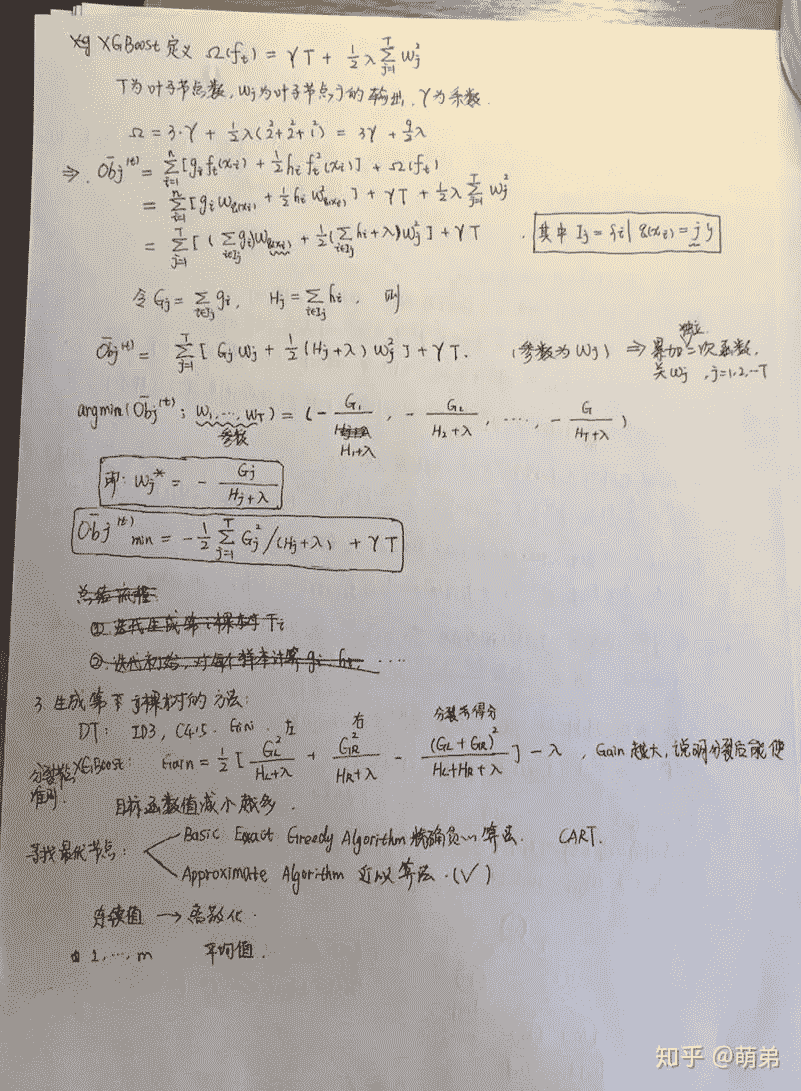 XGBoost 定义 Ω(f_t) = γT + 1/2 λ Σ_{j=1}^{T} w_j^2
T为叶子节点数, w_j为叶子节点j的输出, γ为系数.
Ω = 3·γ + 1/2 λ(2^2+2^2+1^2) = 3γ + 9/2 λ
⇒ Obj^(t) = Σ_{i=1}^{n} [g_i f_t(x_i) + 1/2 h_i f_t^2(x_i)] + Ω(f_t)
= Σ_{i=1}^{n} [g_i w_{q(x_i)} + 1/2 h_i w^2_{q(x_i)}] + γT + 1/2 λ Σ_{j=1}^{T} w_j^2
= Σ_{j=1}^{T} [(Σ_{i∈I_j} g_i) w_{q(x_i)} + 1/2 (Σ_{i∈I_j} h_i + λ) w_j^2] + γT . 其中 I_j = {i | q(x_i) = j}
令 G_j = Σ_{i∈I_j} g_i, H_j = Σ_{i∈I_j} h_i, 则
独立
Obj^(t) = Σ_{j=1}^{T} [G_j w_j + 1/2 (H_j+λ) w_j^2] + γT. (参数为 w_j) ⇒ 累加二次函数,
关w_j, j=1,2,…T
argmin(Obj^(t); w_1,…,w_T) = (- G_1/(H_1+λ), - G_2/(H_2+λ), …, - G/(H_T+λ))
参数
即: w_j^* = - G_j/(H_j+λ)
Obj^(t)_min = -1/2 Σ_{j=1}^{T} G_j^2/(H_j+λ) + γT
① 迭代生成第i棵树T_i
② 迭代初始, 对每个样本计算 g_i h_i, …
3. 生成第 棵树的方法:
DT: ID3, C4.5, Gini.
左 右 分裂前得分
分裂 准则. XGBoost: Gain = 1/2 [G_L^2/(H_L+λ) + G_R^2/(H_R+λ) - (G_L+G_R)^2/(H_L+H_R+λ)] - λ, Gain 越大, 说明分裂后能使
目标函数值减小越多.
寻找最优节点:
Basic Exact Greedy Algorithm 精确贪心算法. CART.
Approximate Algorithm 近似算法.(√)
连续值 → 离散化.
1, …, m 平均值.
知乎 @萌弟